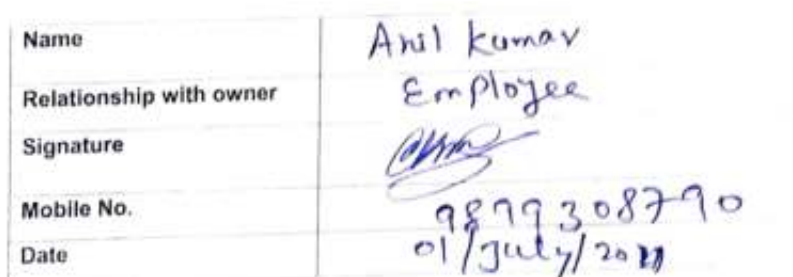 Name Anil Kumar
Relationship with owner Employee
Signature
Mobile No. 9899308790
Date 01/July/20